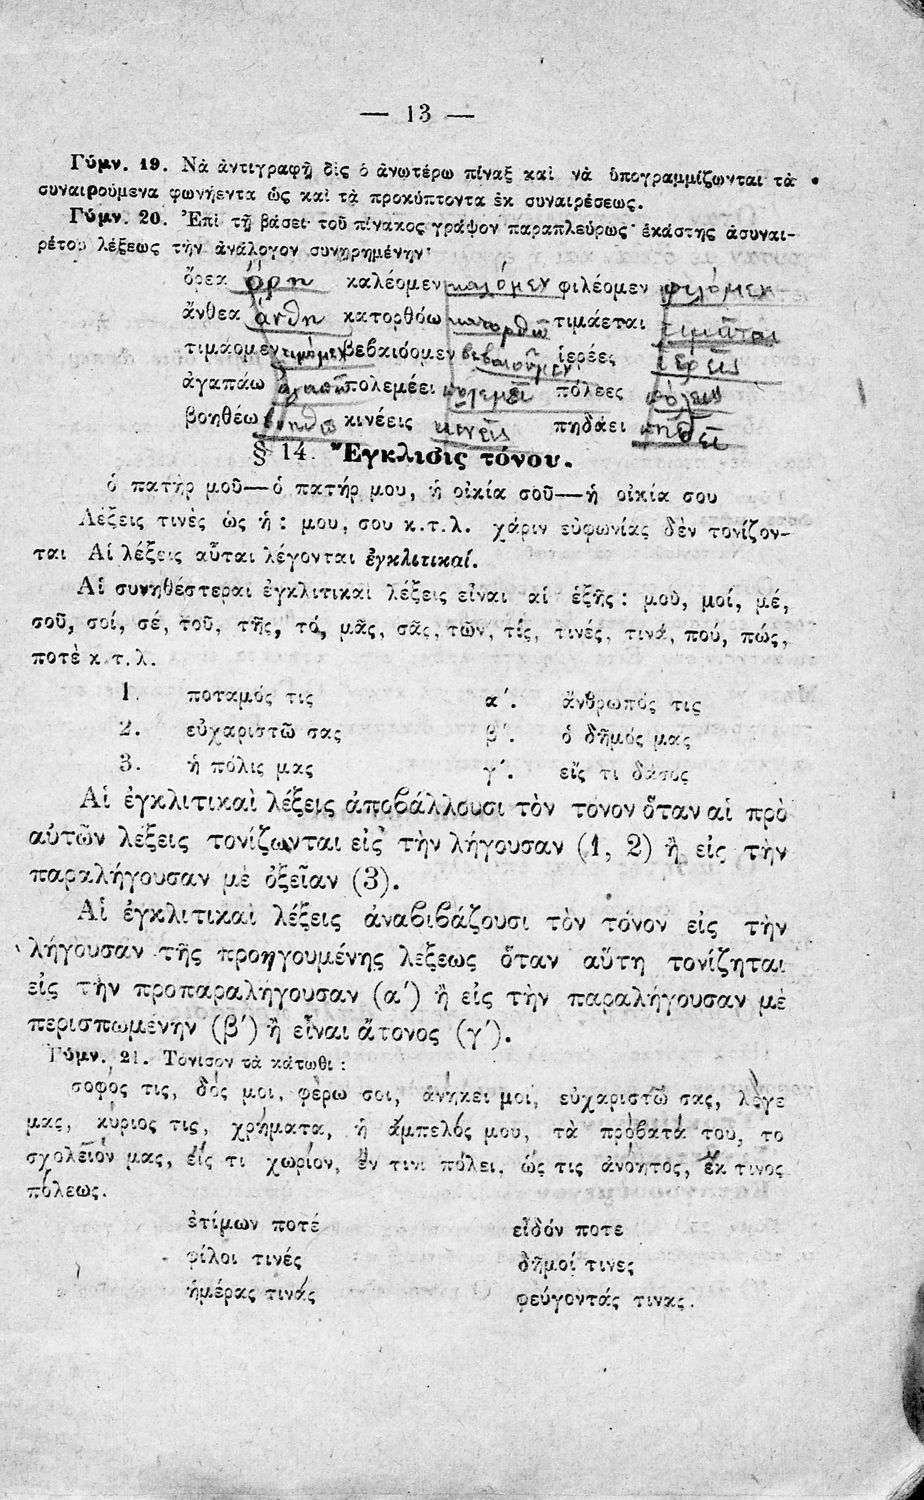 — 13 —
Γύμν. 19. Νὰ ἀντιγραφῇ δὶς ὁ ἀνωτέρω πίναξ καὶ νὰ ὑπογραμμίζωνται τὰ
συναιρούμενα φωνήεντα ὡς καὶ τὰ προκύπτοντα ἐκ συναιρέσεως.
Γύμν. 20. Ἐπὶ τῇ βάσει τοῦ πίνακος γράψον παραπλεύρως ἑκάστης ἀσυναι-
ρέτου λέξεως τὴν ἀνάλογον συνῃρημένην·
ὄρεα ὄρη καλέομεν καλόμεν φιλέομεν φιλόμεν
ἄνθεα ἄνθη κατορθόω κατορθῶ τιμάεται τιμᾶται
τιμάομεν τιμόμεν βεβαιόομεν βεβαιοῦμεν ἱερέες ἱερεῖς
ἀγαπάω ἀγαπῶ πολεμέει πολεμεῖ πόλεες πόλεις
βοηθέω βοηθῶ κινέεις κινεῖς πηδάει πηδεῖ
§ 14. Ἔγκλισις τόνου.
ὁ πατὴρ μοῦ—ὁ πατήρ μου, ἡ οἰκία σοῦ—ἡ οἰκία σου
Λέξεις τινὲς ὡς ἡ : μου, σου κ.τ.λ. χάριν εὐφωνίας δὲν τονίζον-
ται Αἱ λέξεις αὗται λέγονται ἐγκλιτικαί.
Αἱ συνηθέστεραι ἐγκλιτικαὶ λέξεις εἶναι αἱ ἑξῆς : μοῦ, μοί, μέ,
σοῦ, σοί, σέ, τοῦ, τῆς, τό, μᾶς, σᾶς, τῶν, τίς, τινές, τινά, πού, πώς,
ποτὲ κ.τ.λ.
1. ποταμός τις α΄. ἄνθρωπός τις
2. εὐχαριστῶ σας β΄. ὁ δῆμός μας
3. ἡ πόλις μας γ΄. εἴς τι δάσος
Αἱ ἐγκλιτικαὶ λέξεις ἀποβάλλουσι τὸν τόνον ὅταν αἱ πρὸ
αὐτῶν λέξεις τονίζωνται εἰς τὴν λήγουσαν (1, 2) ἢ εἰς τὴν
παραλήγουσαν μὲ ὀξεῖαν (3).
Αἱ ἐγκλιτικαὶ λέξεις ἀναβιβάζουσι τὸν τόνον εἰς τὴν
λήγουσαν τῆς προηγουμένης λέξεως ὅταν αὕτη τονίζηται
εἰς τὴν προπαραλήγουσαν (α΄) ἢ εἰς τὴν παραλήγουσαν μὲ
περισπωμένην (β΄) ἢ εἶναι ἄτονος (γ΄).
Γύμν. 21. Τόνισον τὰ κάτωθι :
σοφός τις, δός μοι, φέρω σοι, ἀνήκει μοι, εὐχαριστῶ σας, λέγε
μας, κύριος τις, χρήματα, ἡ ἄμπελός μου, τὰ πρόβατά του, το
σχολεῖόν μας, εἴς τι χωρίον, ἔν τινι πόλει, ὥς τις ἀνόητος, ἔκ τινος
πόλεως.
ἐτίμων ποτέ εἶδόν ποτε
φίλοι τινές δῆμοί τινες
ἡμέρας τινάς φεύγοντάς τινας.